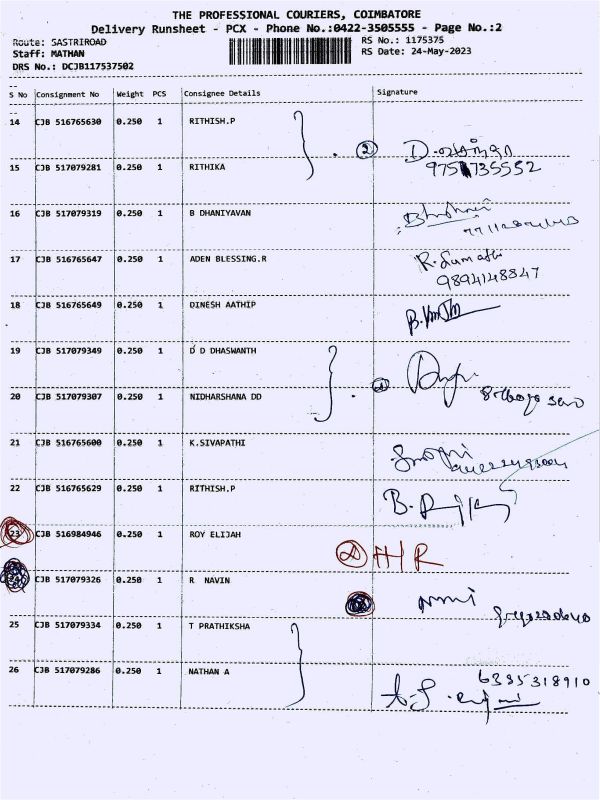 THE PROFESSIONAL COURIERS, COIMBATORE
Delivery Runsheet - PCX - Phone No.:0422-3505555 - Page No.:2
Route: SASTRIROAD RS No.: 1175375
Staff: MATHAN RS Date: 24-May-2023
DRS No.: DCJB117537502
S No Consignment No Weight PCS Consignee Details Signature
14 CJB 516765630 0.250 1 RITHISH.P
2
15 CJB 517079281 0.250 1 RITHIKA
16 CJB 517079319 0.250 1 B DHANIYAVAN
17 CJB 516765647 0.250 1 ADEN BLESSING.R R. Sumathi
9894148847
18 CJB 516765649 0.250 1 DINESH AATHIP
19 CJB 517079349 0.250 1 D D DHASWANTH
20 CJB 517079307 0.250 1 NIDHARSHANA DD
21 CJB 516765600 0.250 1 K.SIVAPATHI
22 CJB 516765629 0.250 1 RITHISH.P
23 CJB 516984946 0.250 1 ROY ELIJAH HR
24 CJB 517079326 0.250 1 R NAVIN
25 CJB 517079334 0.250 1 T PRATHIKSHA
26 CJB 517079286 0.250 1 NATHAN A 6385318910